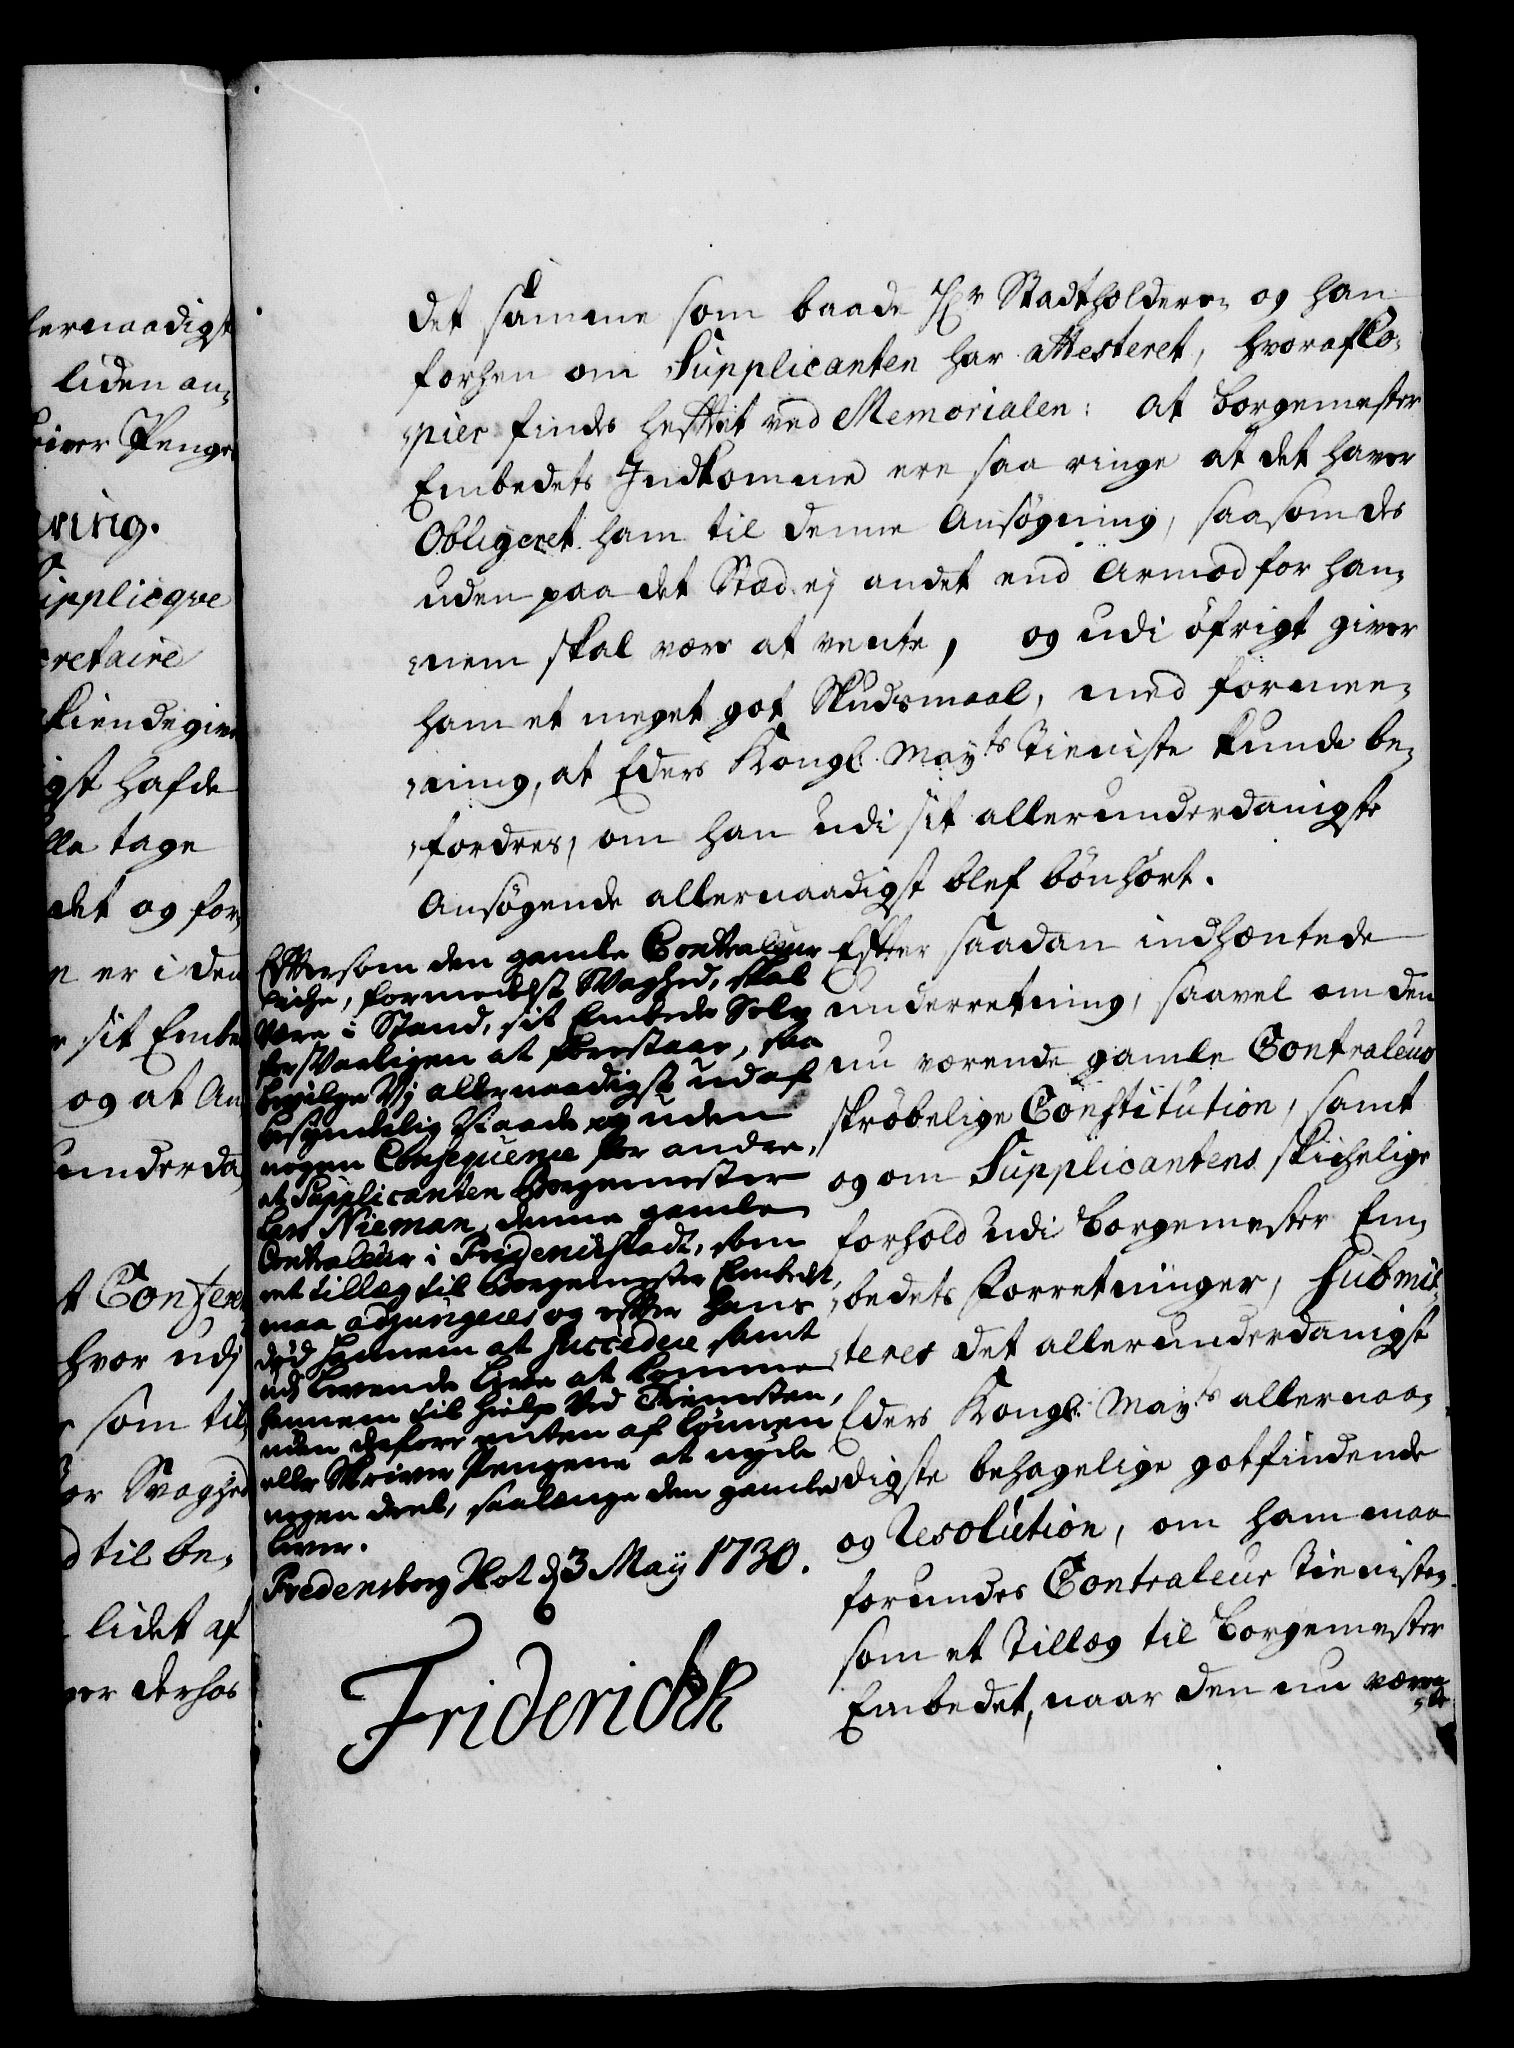 lernaadigst
liden an-
Penge
ring.
upplicqve
cretaire
kiendegive
gst hafde
lle tage
det og for-
er i den
sit Embe
og at An
underda
t Confer
hvor udj
som til
for Svaghed
d til be-
lidet af
derhos
det samme som baade Hr Stadtholderen og han
forhen om Supplicanten har attesteret, hvoraf Co-
pier findes hefftet ved Memorialen: At Borgemester
Embedets Indkomme ere saa ringe at det haver
Obligeret ham til denne Ansøgning, saasom des
uden paa det Stæd ej andet end Armod for han-
nem skal være at vente, og udi øfrigt giver
ham et meget got Skudsmaal, med formee-
ning, at Eders Kongl. Mayts Tieniste kunde be-
fordres, om han udi sit allerunderdanigste
Ansøgende allernaadigst blef bønhørt.
Effter saadan indhæntede
underretning, saavel om den
nu værende gamle Contraleurs
skrøbelige Constitution, samt
og om Supplicantens skichelige
forhold udi Borgemester Em-
bedets Forretninger, Submit-
teres det allerunderdanigst
Eders Kongl. Mayts allernaa-
digste behagelige gotfindende
og Resolution, om ham maa
forundes Contraleur Tienisten
som et Tillæg til Borgemester
Embedet, naar den nu væren-
de
Efftersom den gamle Contraleur
formedelst Svaghed, skal
være i Stand, sit Embede Selv
forsvarligen at forestaae, saa
bevilge Vj allernaadigst udaf
besynderlig Naade og uden
nogen Consequence for andre,
at Supplicanten Borgemester
Carl Nieman, denne gamle
Contraleur i Friderichstadt, som
et tillæg til Borgemester Embedet,
maa adjungeres og effter hans
død hannem at succedere, samt
udj levende Live at komme
hannem til hielp ved Tienesten,
uden derfore enten af Lønnen
eller Skriver Pengene at nyde
nogen deel, saalænge den gamle
lever.
Fredensborg Slot d 3 May 1730.
Friderich R